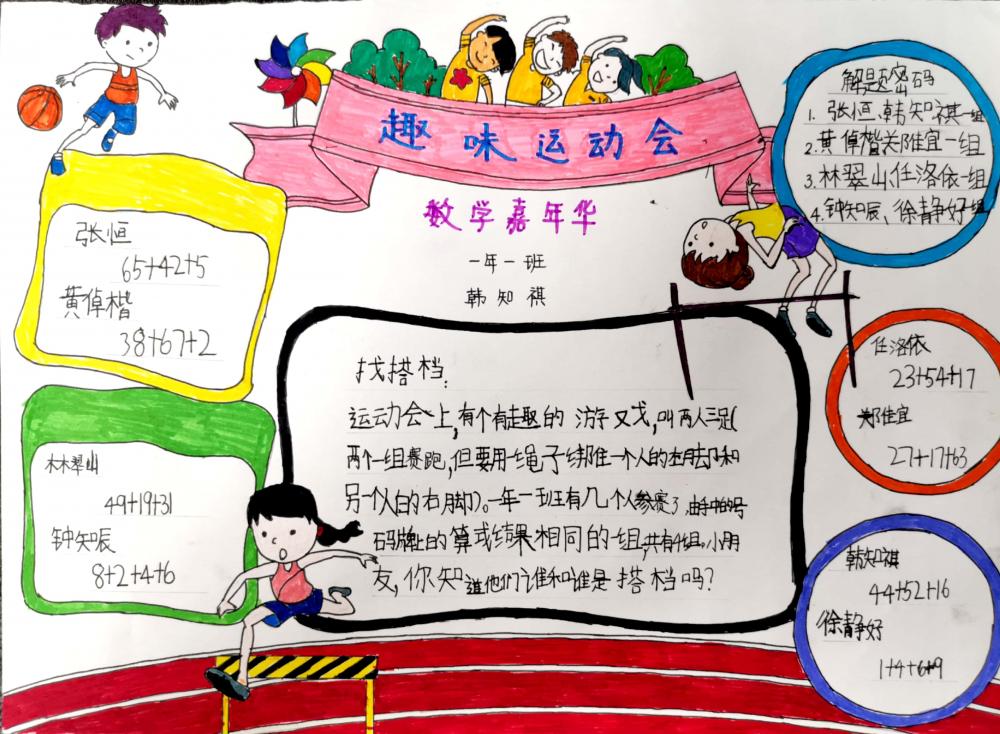 趣味运动会
数学嘉年华
一年一班
韩知祺
解题密码
1. 张恒、韩知祺一组
2. 黄倬楷关陆宜一组
3. 林翠山、任洛依一组
4. 钟知辰、徐静好一组
张恒
65+42+5
黄倬楷
38+67+2
林翠山
49+19+31
钟知辰
8+2+4+6
找搭档:
运动会上,有个有趣的游戏,叫两人三足(
两个一组赛跑,但要用绳子绑住一个人的左脚和
另一个人的右脚)。一年一班有几个人参赛了,由手中的号
码牌上的算式结果相同的一组,共有4组。小朋
友,你知道他们谁和谁是搭档吗?
任洛依
23+54+17
27+17+63
韩知祺
44+52+16
徐静好
1+4+6+9